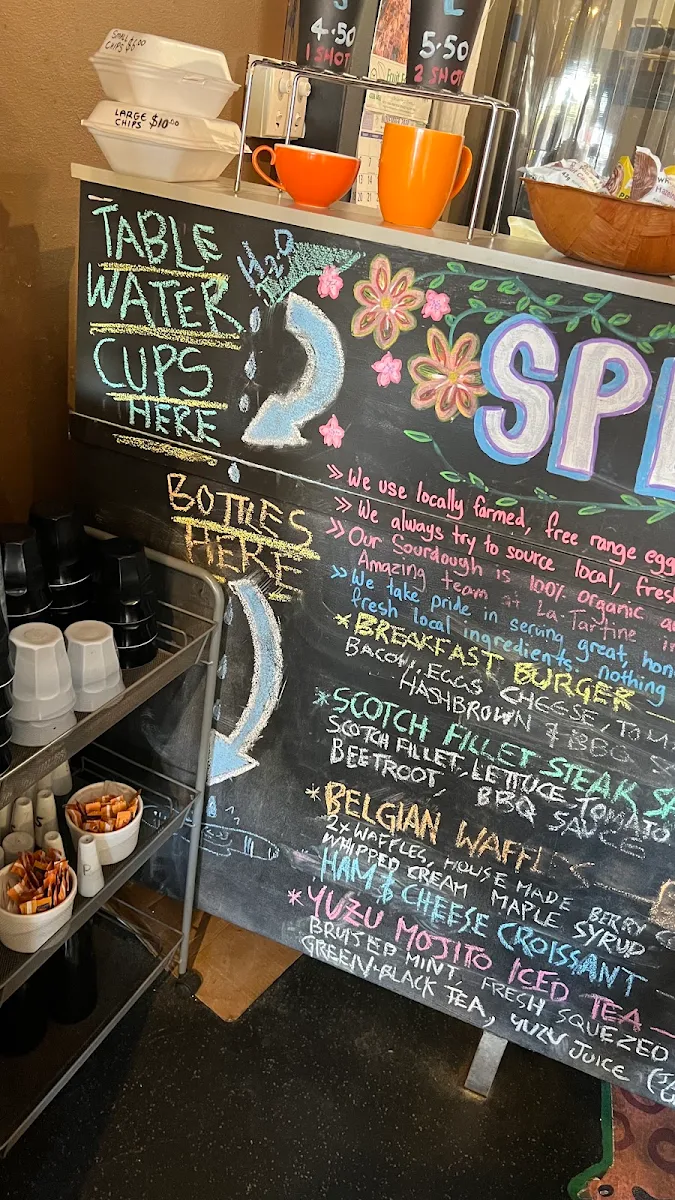 SMALL
CHIPS $6.00
LARGE
CHIPS $10.00
4.50
1 SHOT
L
5.50
2 SHOT
TABLE
WATER
CUPS
HERE
H2O
BOTTLES
HERE
SPE
» We use locally farmed, free range egg
» We always try to source local, fres
» Our Sourdough is 100% organic a
Amazing team at La-Tartine in
» We take pride in serving great, hon
fresh local ingredients, nothing
* BREAKFAST BURGER
BACON, EGGS CHEESE, TOM
HASHBROWN & BBQ S
* SCOTCH FILLET STEAK SA
SCOTCH FILLET, LETTUCE, TOMATO
BEETROOT, BBQ SAUCE
* BELGIAN WAFFLES
2x WAFFLES, HOUSE MADE BERRY
WHIPPED CREAM MAPLE SYRUP
HAM & CHEESE CROISSANT
* YUZU MOJITO ICED TEA
BRUISED MINT, FRESH SQUEZED
GREEN+BLACK TEA, YUZU JUICE